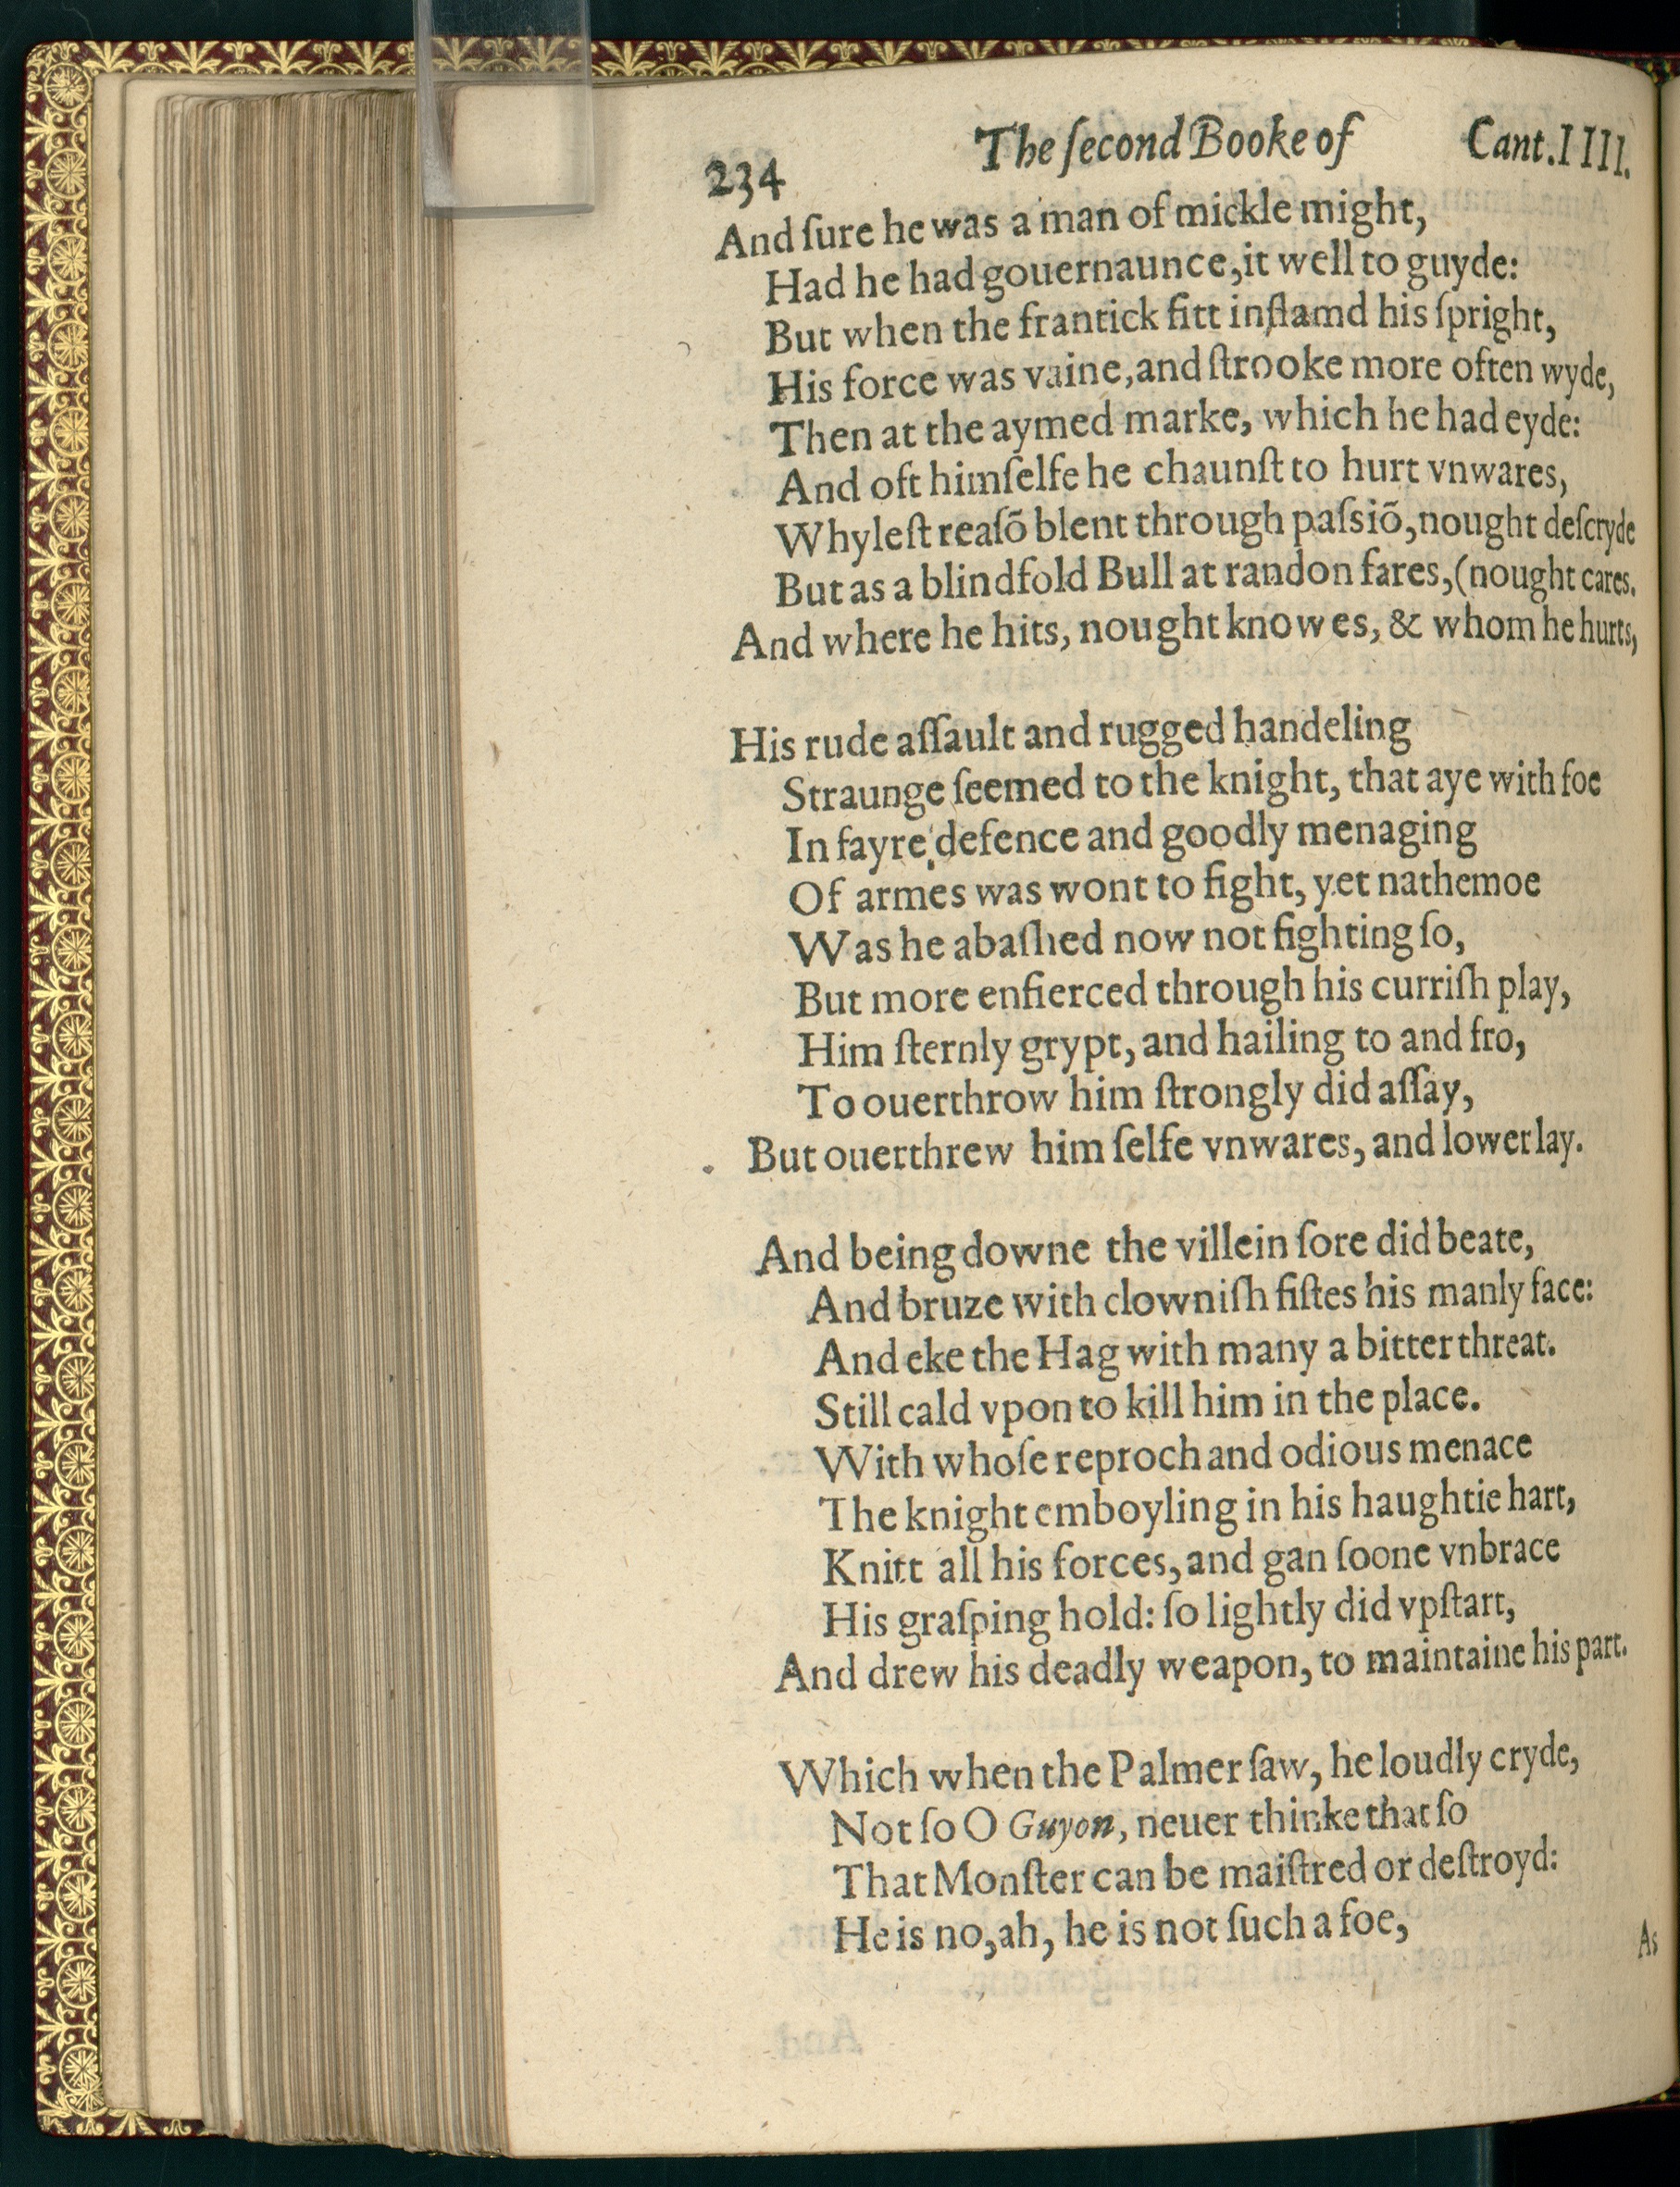 234 The ſecond Booke of Cant. IIII.
And ſure he was a man of mickle might,
Had he had gouernaunce, it well to guyde:
But when the frantick fitt inflamd his ſpright,
His force was vaine, and ſtrooke more often wyde,
Then at the aymed marke, which he had eyde:
And oft himſelfe he chaunſt to hurt vnwares,
Whyleſt reaſõ blent through paſsiõ, nought deſcryde
But as a blindfold Bull at randon fares, (nought cares.
And where he hits, nought knowes, & whom he hurts,
His rude aſſault and rugged handeling
Straunge ſeemed to the knight, that aye with foe
In fayre defence and goodly menaging
Of armes was wont to fight, yet nathemoe
Was he abaſhed now not fighting ſo,
But more enfierced through his curriſh play,
Him ſternly grypt, and hailing to and fro,
To ouerthrow him ſtrongly did aſſay,
But ouerthrew him ſelfe vnwares, and lower lay.
And being downe the villein ſore did beate,
And bruze with clowniſh fiſtes his manly face:
And eke the Hag with many a bitter threat.
Still cald vpon to kill him in the place.
With whoſe reproch and odious menace
The knight emboyling in his haughtie hart,
Knitt all his forces, and gan ſoone vnbrace
His graſping hold: ſo lightly did vpſtart,
And drew his deadly weapon, to maintaine his part.
Which when the Palmer ſaw, he loudly cryde,
Not ſo O Guyon, neuer thinke that ſo
That Monſter can be maiſtred or deſtroyd:
He is no, ah, he is not ſuch a foe,
As